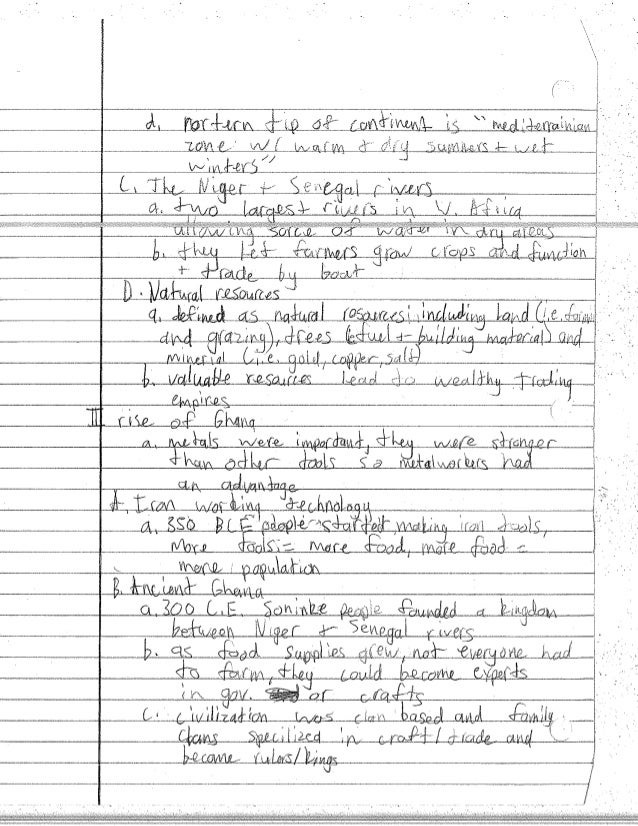 d. nortern tip of continent is "mediterrainian
zone w/ warm + dry summers + wet
winters"
C. The Niger + Senegal rivers
a. two largest rivers in V. Africa
allowing sorce of water in dry areas
b. they let farmers grow crops and function
+ trade by boat
D. Natural resources
a. defined as natural rosources; including land (i.e. farm
and grazing), trees (fuel + building material) and
minerial (i.e. gold, copper, salt)
b. valuable resources lead to wealthy trading
empires
II rise of Ghana
a. metals were important, they were stronger
than other tools so metalworkers had
an advantage
A. Iron working technology
a. 350 BCE people started making iron tools,
More tools = more food, more food =
more population
B. Ancient Ghana
a. 300 C.E. Soninke people founded a kingdom
between Niger + Senegal rivers
b. as food supplies grew, not everyone had
to farm, they could become experts
in gov. or crafts
C. civilization was clan based and family
clans specilized in craft/trade and
became rulers/kings